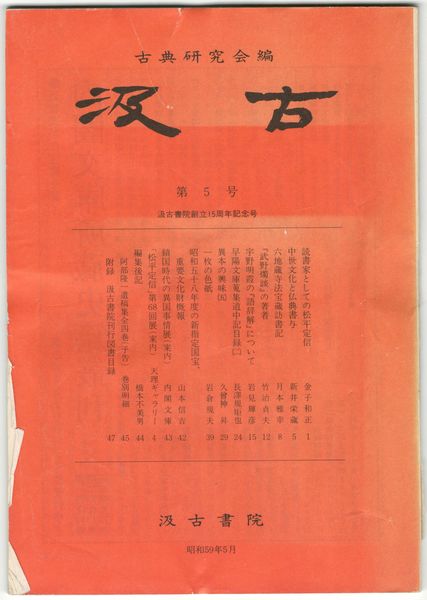 古典研究会編
汲古
第5号
汲古書院創立15周年記念号
読書家としての松平定信 金子和正 1
中世文化と仏典書写 新井栄蔵 5
六地蔵寺法宝蔵訪書記 月本雅幸 8
『武野燭談』の著者 竹治貞夫 12
宇野明霞の『語辞解』について 岩見輝彦 15
早陽文庫蒐集道中記目録(二) 長澤規矩也 24
異本の興味(五) 久曾神昇 29
一枚の色紙 岩倉規夫 39
昭和五十八年度の新指定国宝、
重要文化財概報 山本信吉 42
鎖国時代の異国事情展(案内) 内閣文庫 43
「松平定信」第68回展(案内) 天理ギャラリー 4
編集後記 橋本不美男 44
阿部隆一遺稿集全四巻(予告) 巻別明細 45
附録 汲古書院刊行図書目録 47
汲古書院
昭和59年5月